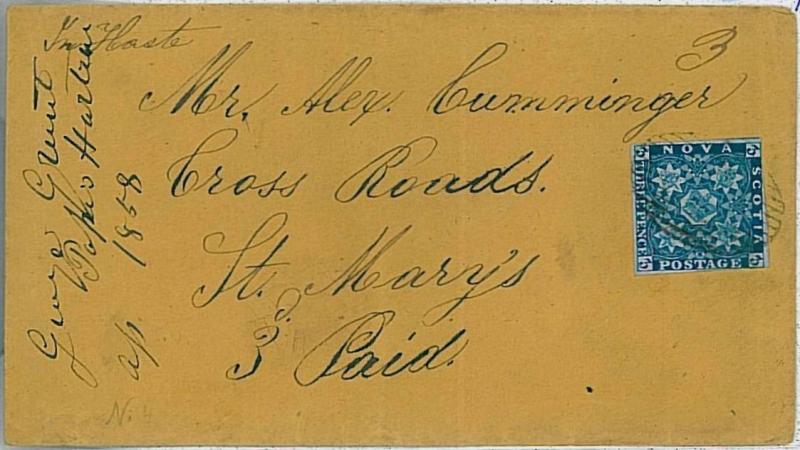 In Haste
3
Mr. Alex. Cumminger
Cross Roads.
St. Mary's
3d Paid.
George Grunt
1858
N. 4
NOVA
SCOTIA
THREE PENCE
POSTAGE